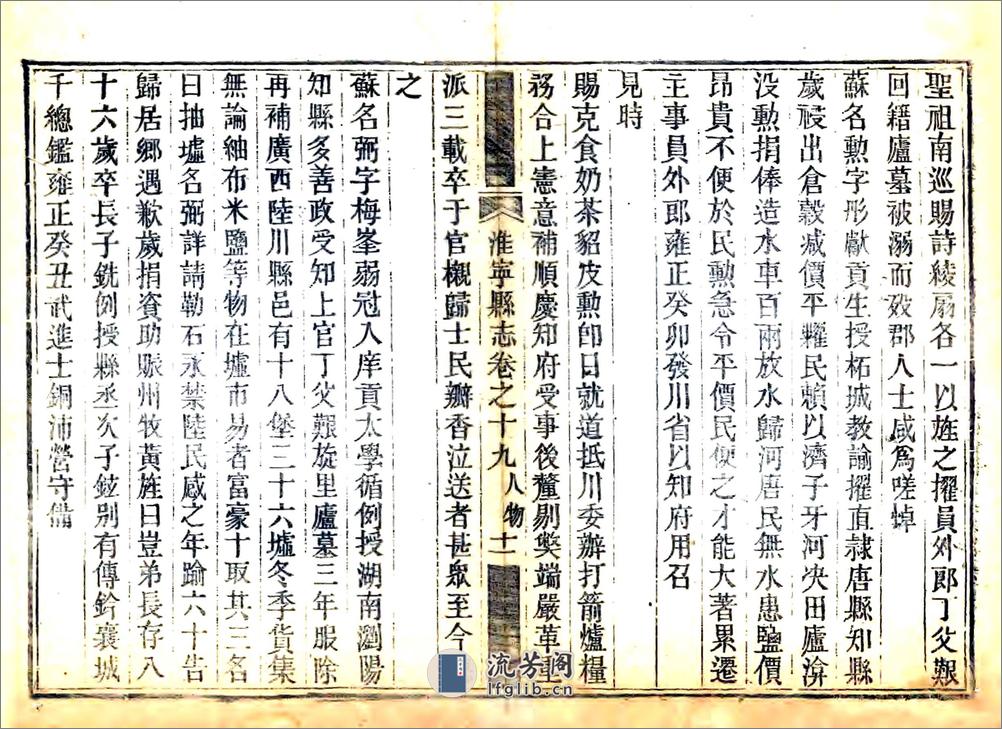 聖祖南巡賜詩綾扇各一以旌之擢員外郎丁父艱
回籍廬墓被溺而歿郡人士咸為嗟悼
蘇名勲字形猷貢生授柘城教諭擢直隸唐縣知縣
歲祲出倉穀減價平糶民頼以濟子牙河决田廬渰
没勲捐俸造水車百兩放水歸河唐民無水患鹽價
昂貴不便於民勲急令平價民便之才能大著累遷
主事員外郎雍正癸卯發川省以知府用召
見時
賜克食奶茶貂皮勲卽日就道抵川委辦打箭爐糧
務合上憲意補順慶知府受事後釐剔獘端嚴革重
淮寧縣志卷之十九 人物 十一
派三載卒于官櫬歸士民瓣香泣送者甚眾至今
之
蘇名弼字梅峯弱冠入庠貢太學循例授湖南瀏陽
知縣多善政受知上官丁父艱旋里廬墓三年服除
再補廣西陸川縣邑有十八堡三十六墟冬季貨集
無論紬布米鹽等物在墟市易者富豪十取其三名
曰抽墟名弼詳請勒石永禁陸民感之年踰六十告
歸居鄉遇歉歲捐資助賑州牧黃旌曰豈弟長存八
十六歲卒長子銑例授縣丞次子鉉別有傳鈐襄城
千總鑑雍正癸丑武進士銅沛營守備
流芳閣
lfglib.cn